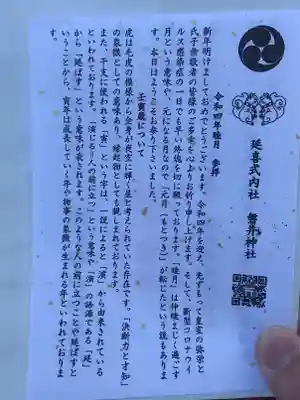 延喜式内社 磐井神社
令和四年睦月 参拝
新年明けましておめでとうございます。令和四年を迎え、先ずもって皇室の弥栄と
氏子崇敬者の皆様のご多幸を心よりお祈り申し上げます。そして、新型コロナウイ
ルス感染症の一日でも早い終熄を切に願っております。「睦月」は仲睦まじく過ごす
月という意味や、元になる月なので「元月(もとつき)」が転じたという説もありま
す。本日はようこそお参り下さいました。
壬寅歳について
虎は毛皮の模様から全身が夜空に輝く星と考えられていた存在です。「決断力と才知」
の象徴としての意味あり、縁起物としても親しまれております。
また、干支に使われる「寅」という字は、一説によると「演」から由来されている
といわれております。「演じる=人の前に立つ」という意味や「演」の語源である「延」
から「延ばす」という意味が表されます。このような人の前に立つことや延ばすと
いうことから、寅年は成長していく年や物事の象徴が生まれる年といわれておりま
す。